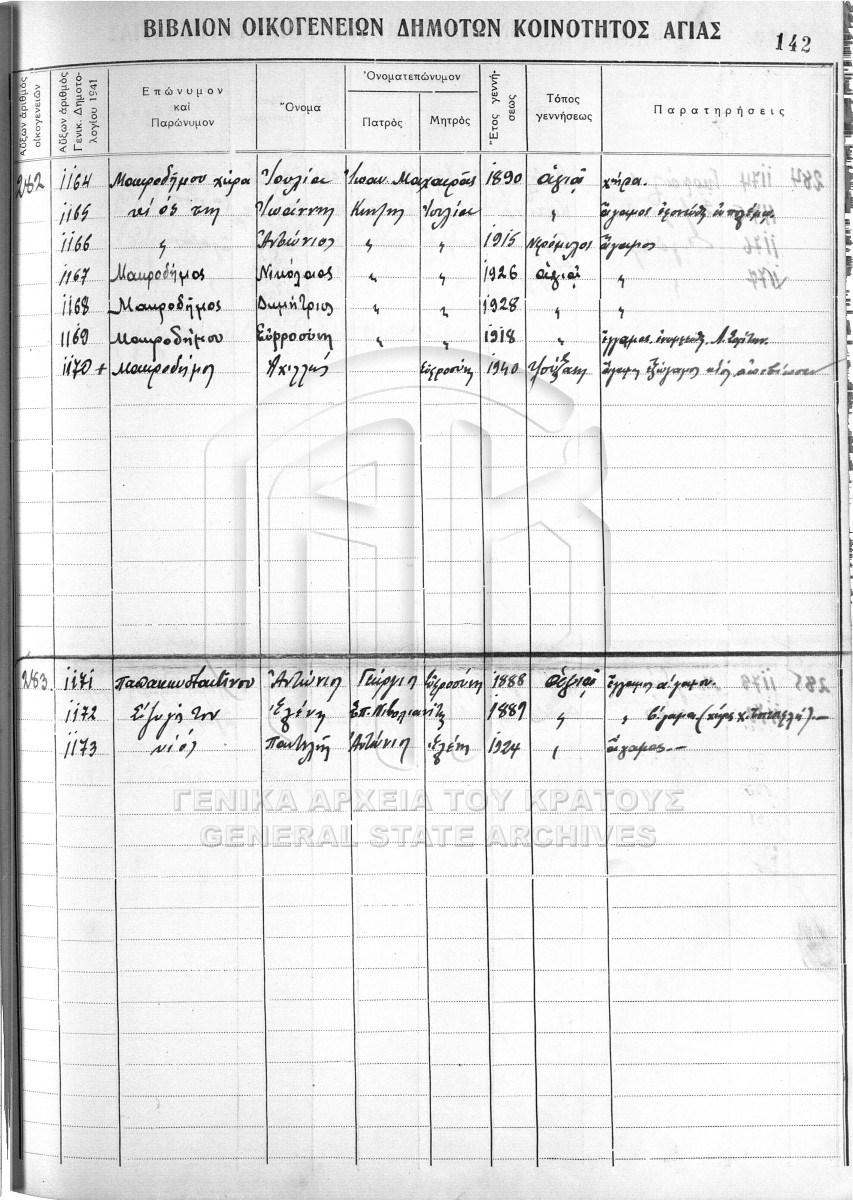 ΒΙΒΛΙΟΝ ΟΙΚΟΓΕΝΕΙΩΝ ΔΗΜΟΤΩΝ ΚΟΙΝΟΤΗΤΟΣ ΑΓΙΑΣ
142
Αὔξων ἀριθμὸς οἰκογενειῶν
Αὔξων ἀριθμὸς Γενικ. Δημοτολογίου 1941
Ἐπώνυμον καὶ Παρώνυμον
Ὄνομα
Ὀνοματεπώνυμον
Πατρὸς
Μητρὸς
Ἔτος γεννήσεως
Τόπος γεννήσεως
Παρατηρήσεις
282 1164 Μακροδήμου χήρα Ἰουλία Ἰωαν. Μαχαιρᾶς 1890 Ἁγιᾷ χήρα.
1165 υἱός της Ἰωάννης Ἰουλία " ἄγαμος
1166 " Ἀντώνιος " " 1915 Νερόμυλος ἄγαμος
1167 Μακροδήμος Νικόλαος " " 1926 Ἁγιᾷ "
1168 Μακροδήμος Δημήτριος " " 1928 " "
1169 Μακροδήμου Εὐφροσύνη " " 1918 " ἔγγαμος
1170 + Μακροδήμος Ἀχιλλεύς Εὐφροσύνη 1940
283 1171 Παπακωνσταντίνου Ἀντώνιος Γεώργιος Εὐφροσύνη 1888 Ἁγιᾷ
1172 Σύζυγός του Ἑλένη 1889 " "
1173 υἱός Παντελῆς Ἀντώνιος Ἑλένη 1924 " ἄγαμος
ΓΕΝΙΚΑ ΑΡΧΕΙΑ ΤΟΥ ΚΡΑΤΟΥΣ
GENERAL STATE ARCHIVES